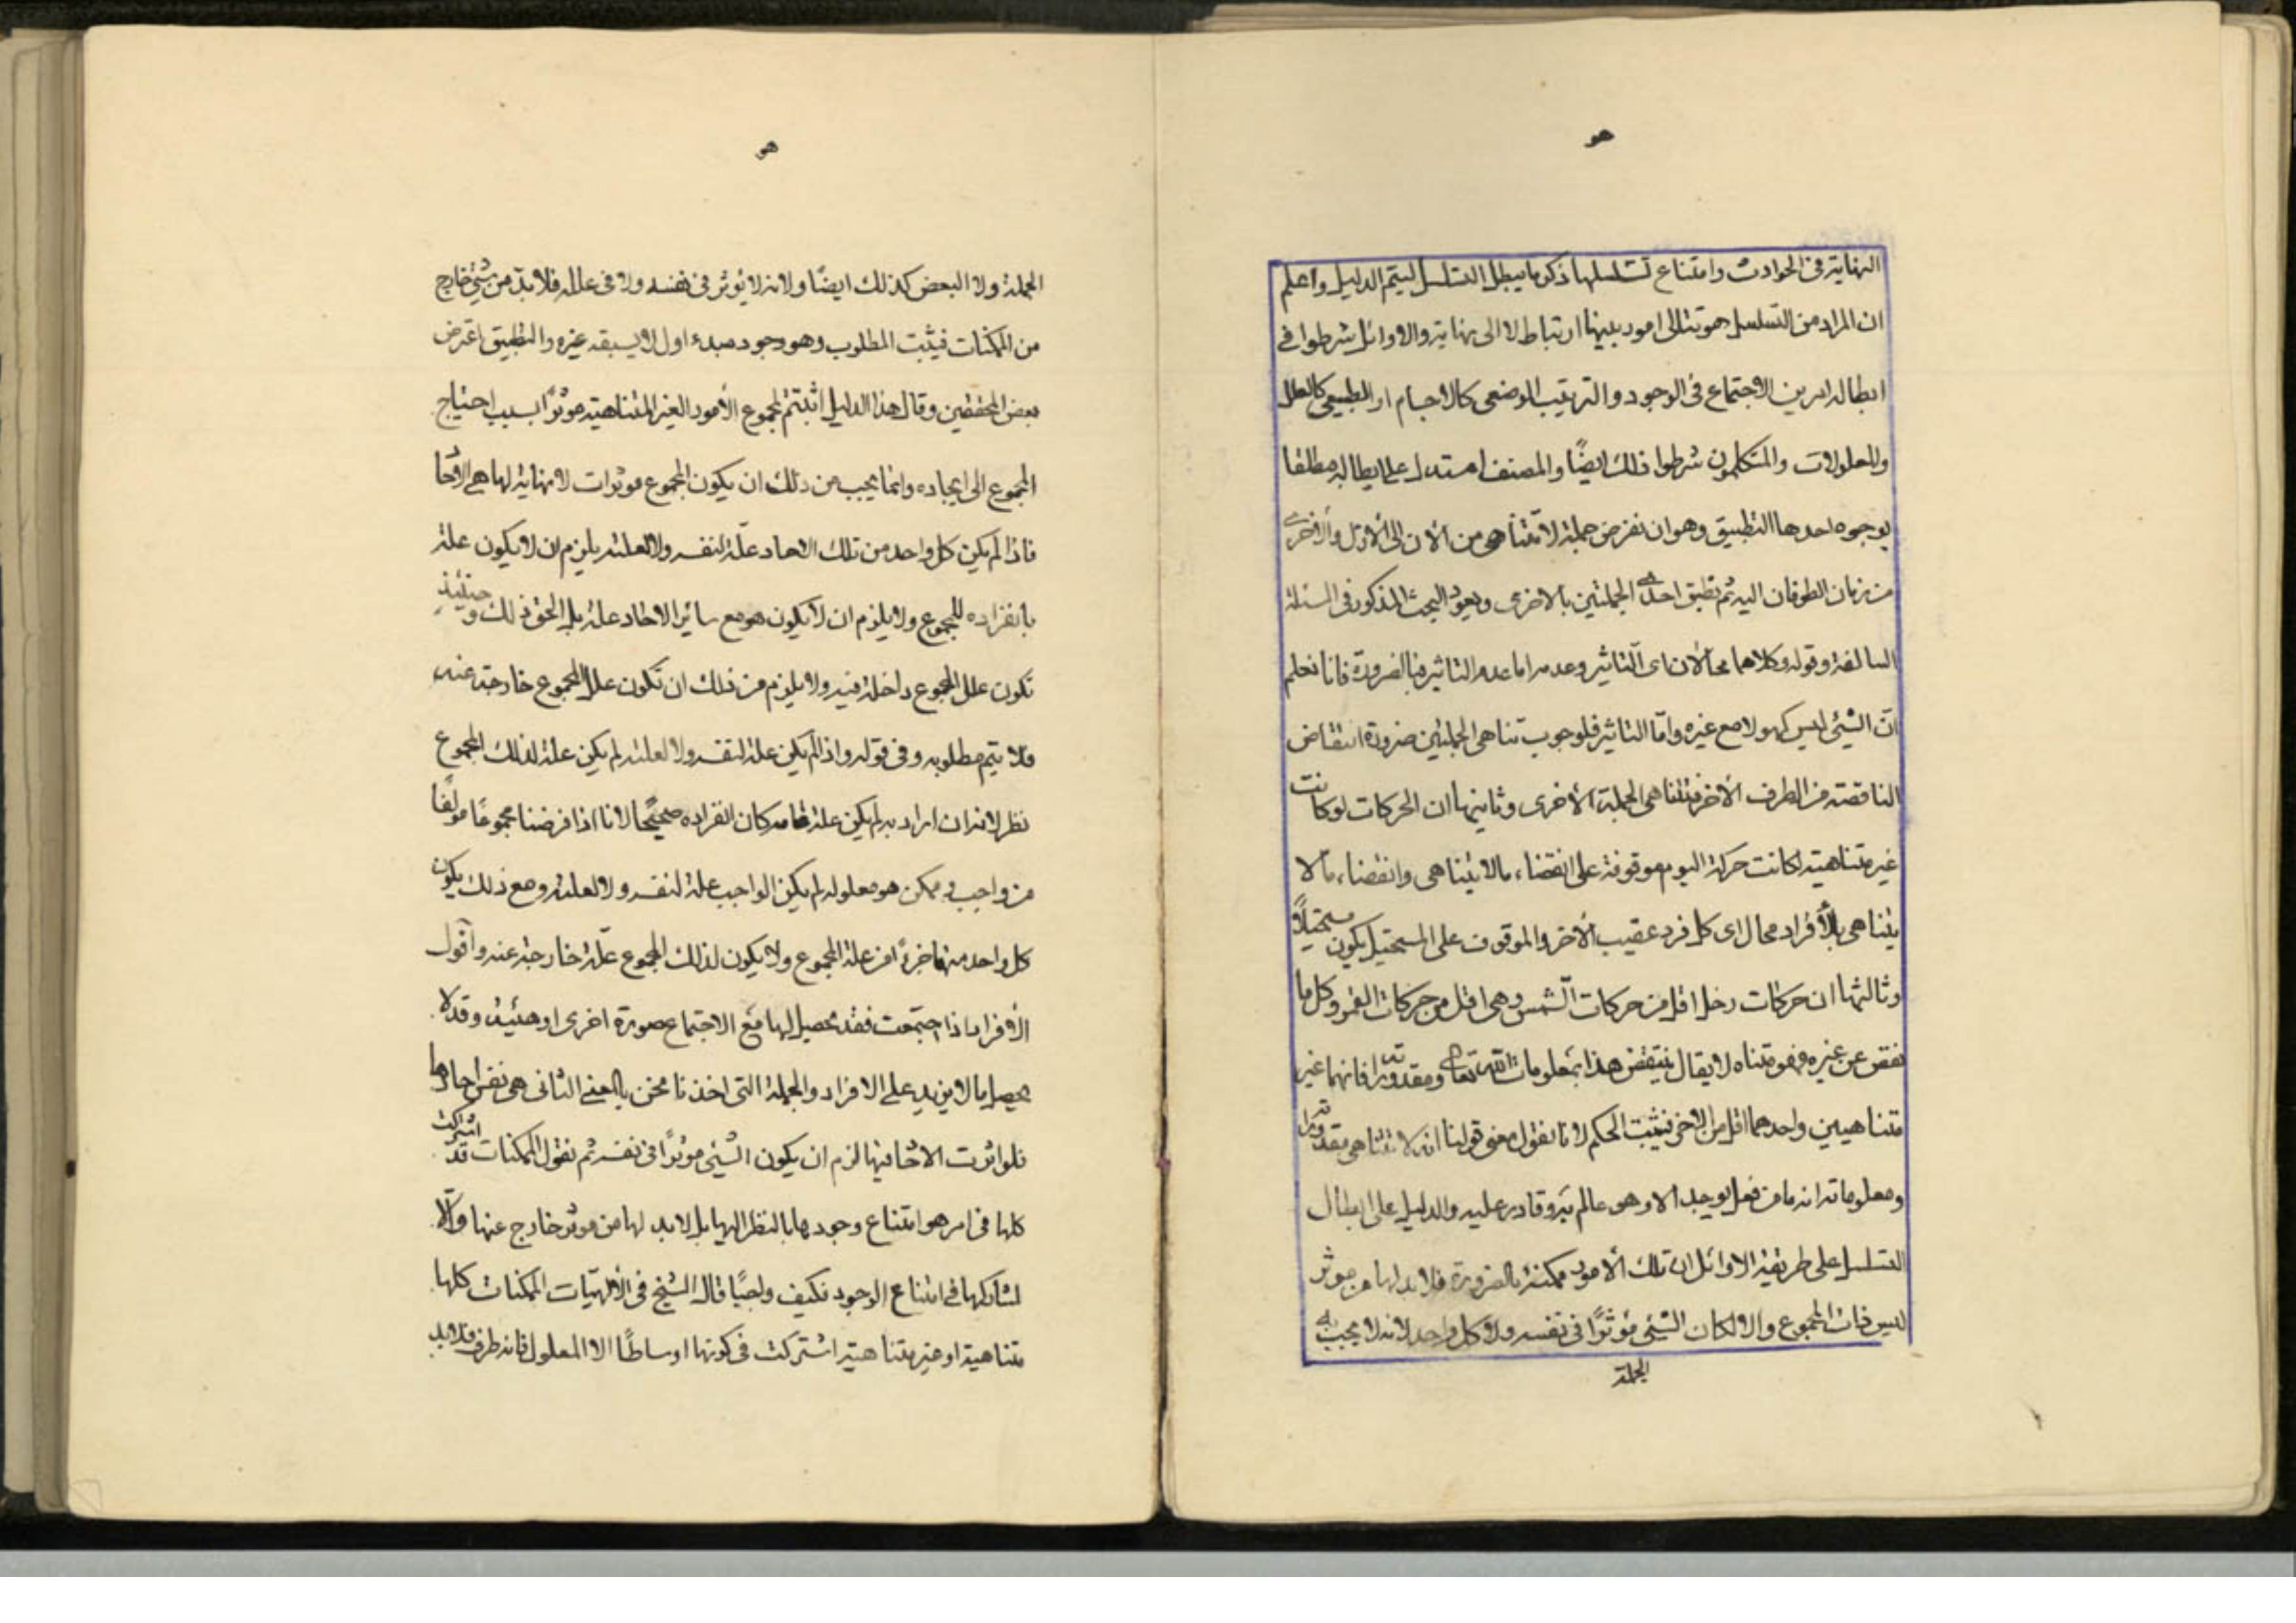 هو
النهاية فى الحوادث وامتناع تسلسلها ذكر ما يبطل التسلسل ليتم الدليل واعلم
ان المراد من التسلسل هو تتالى امور بينها ارتباط لا الى نهاية والاوائل شرطوا فى
ابطاله امرين الاجتماع فى الوجود والترتيب الوضعى كالاجسام او الطبيعى كالعلل
والمعلولات والمتكلمون شرطوا ذلك ايضًا والمصنف استدل على ابطاله مطلقا
بوجوه احدها التطبيق وهو ان نفرض جملة لا تتناهى من الان الى الازل والاخرى
من زمان الطوفان اليه ثم نطبق احدى الجملتين بالاخرى ويعود البحث المذكور فى المسئلة
السالفة وقوله وكلاهما محالان اى التاثير وعدمه اما عدم التاثير فبالضرورة فانا نعلم
انّ الشيئ ليس كهو لا مع غيره وامّا التاثير فلوجوب تناهى الجملتين ضرورة انتقاص
الناقصة من الطرف الأخر فتتناهى الجملة الأخرى وثانيها ان الحركات لو كانت
غير متناهية لكانت حركة اليوم موقوفة على انقضاء ما لا يتناهى وانقضاء ما لا
يتناهى بالأفراد محال اى كل فرد عقيب الأخر والموقوف على المستحيل يكون مستحيلاً
وثالثها ان حركات زحل اقل من حركات الشمس وهى اقل من حركات القمر وكل ما
نقص عن غيره فهو متناه لا يقال ينتقض هذا بمعلومات الله تعالى ومقدوراته فانها غير
متناهيين واحدهما اقل من الاخر فيثبت الحكم لانا نقول معنى قولنا انه لا تتناهى مقدوراته
ومعلوماته انه ما من فعل يوجد الا وهو عالم به وقادر عليه والدليل على ابطال
التسلسل على طريقة الاوائل ان تلك الأمور ممكنة بالضرورة فلا بد لها من موثر
ليس ذات المجموع والا لكان الشيئ مؤثرًا فى نفسه ولا كل واحد لانه لا يجب به
الجملة
هو
الجملة ولا البعض كذلك ايضًا ولانه لا يؤثر فى نفسه ولا فى علله فلا بدّ من شيئ خارج
من الممكنات فيثبت المطلوب وهو وجود مبدء اول لا يسبقه غيره والتطبيق اعترض
بعض المحققين وقال هذا الدليل اثبتم لمجموع الأمور الغير المتناهية موثرًا بسبب احتياج
المجموع الى ايجاده وانما يجب من ذلك ان يكون المجموع موثرات لا نهاية لها هى الاحاد
فاذا لم يكن كل واحد من تلك الاحاد علّة لنفسه ولا لعلته يلزم ان لا يكون علة
بانفراده للمجموع ولا يلزم ان لا يكون هو مع سائر الاحاد علة بل الحق ذلك وحينئذ
تكون علل المجموع داخلة فيه ولا يلزم من ذلك ان تكون علل المجموع خارجة عنه
فلا يتم مطلوبه وفى قوله واذا لم يكن علة لنفسه ولا لعلته لم يكن علة لذلك المجموع
نظر لانه ان اراد به لم يكن علة تامة كان انفراده صحيحًا لانا اذا فرضنا مجموعًا مولفًا
من واجب وممكن هو معلوله لم يكن الواجب علة لنفسه ولا لعلته ومع ذلك يكون
كل واحد منهما جزءً من علة المجموع ولا يكون لذلك المجموع علّة خارجة عنه واقول
الأفراد اذا اجتمعت فقد يحصل لها مع الاجتماع صورة اخرى او هيئة وقد لا
يحصل ما لا يزيد على الافراد والجملة التى اخذنا نحن بالمعنى الثانى هى نفس احادها
فلو اثرت الاحاد فيها لزم ان يكون الشيئ موثرًا فى نفسه ثم نقول الممكنات قد اشتركت
كلها فى امر هو امتناع وجودها بالنظر اليها بل لا بد لها من موثر خارج عنها والّا
لشاركها فى امتناع الوجود فكيف ولجبًا قال الشيخ فى الألهيّات الممكنات كلها
متناهية او غير متناهية اشتركت فى كونها اوساطًا الا المعلول فانه طرف فلا بد